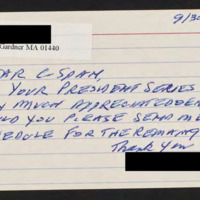 9/30
Gardner MA 01440
AR C-SPAN,
YOUR PRESIDENT SERIES
MUCH APPRECIATED
YOU PLEASE SEND ME
EDULE FOR THE REMAINING
THANK YOU